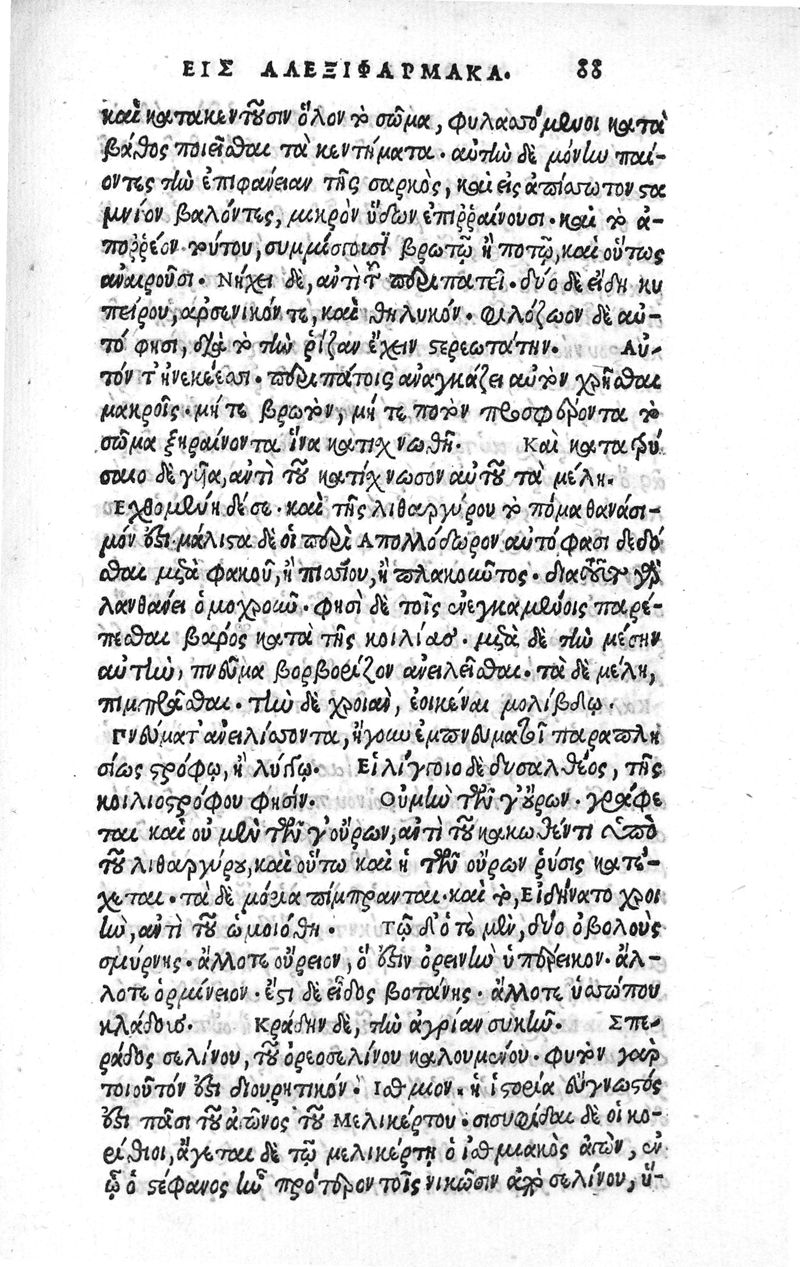 ΕΙΣ ΑΛΕΞΙΦΑΡΜΑΚΑ. 88
καὶ κατακεντοῦσιν ὅλον τὸ σῶμα, φυλασσόμενοι κατὰ
βάθος ποιεῖσθαι τὰ κεντήματα. αὐτὴν δὲ μόνην παί-
οντες τὴν ἐπιφάνειαν τῆς σαρκὸς, καὶ εἰς ἀπίσσωτον στα
μνίον βαλόντες, μικρὸν ὕδωρ ἐπιῤῥαίνουσι. καὶ τὸ ἀ-
ποῤῥέον τούτου, συμμίσγουσι βρωτῷ ἢ ποτῷ, καὶ οὕτως
ἀναιροῦσι. Νήχει δὲ, ἀντὶ τοῦ περιπατεῖ. δύο δὲ εἴδη κυ
πείρου, ἀρσενικόν τε, καὶ θηλυκόν. Φιλόζωον δὲ αὐ-
τό φησι, διὰ τὸ τὴν ῥίζαν ἔχειν στερεωτάτην. Αὐ-
τόν τ' ἠνεκέεσσι. περιπάτοις ἀναγκάζει αὐτὸν χρῆσθαι
μακροῖς. μήτε βρωτὸν, μήτε ποτὸν προσφέροντα τὸ
σῶμα ξηραίνοντα ἵνα κατιχνωθῇ. Καὶ κατατρύ
σαιο δὲ γυῖα, ἀντὶ τοῦ κατίχνωσον αὐτοῦ τὰ μέλη.
Εχθομένη δέ σε. καὶ τῆς λιθαργύρου τὸ πόμα θανάσι-
μόν ἐστι. μάλιστα δὲ οἱ περὶ Απολλόδωρον αὐτό φασι δεδό
σθαι μετὰ φακοῦ, ἢ πισσίου, ἢ πλακοῦντος. διὰ τοῦτο γὰρ
λανθάνει ὁμοχροοῦν. φησὶ δὲ τοῖς ἐνεγκαμένοις παρέ-
πεσθαι βαρός κατὰ τῆς κοιλίας. μετὰ δὲ τὴν μέσην
αὐτὴν, πνεῦμα βορβορίζον ἀνειλεῖσθαι. τὰ δὲ μέλη,
πιμπρᾶσθαι. τὴν δὲ χροιὰν, ἐοικέναι μολίβδῳ.
Πνεύματ' ἀνειλίσσοντα, ἤγουν ἐμπνευματοῖ παραπλη
σίως στρόφῳ, ἢ λύπῳ. Εἰλίγγοιο δὲ δυσαλθέος, τῆς
κοιλιοστρόφου φησίν. Οὐ μὴν τῶν γ' οὔρων. γράφε
ται καὶ οὐ μὲν τῶν γ' οὔρων, ἀντὶ τοῦ κακωθέντι ἀπὸ
τοῦ λιθαργύρου, καὶ οὕτω καὶ ἡ τῶν οὔρων ῥύσις κατέ-
χεται. τὰ δὲ μόρια πίμπρανται. καὶ τὸ, Εἰδήνατο χροι
ὴν, ἀντὶ τοῦ ὡμοιώθη. Τῷ δ' ὁτὲ μὲν, δύο ὀβολοὺς
σμύρνης. ἄλλοτε οὔρειον, ὅ ἐστιν ὀρεινὴν ὑπέρεικον. ἄλ-
λοτε ὁρμίνειον. ἔστι δὲ εἶδος βοτάνης. ἄλλοτε ὑσσώπου
κλάδους. Κράδην δὲ, τὴν ἀγρίαν συκῆν. Σπέ-
ραδος σελίνου, τοῦ ὀρεοσελίνου καλουμένου. φυτὸν γὰρ
τοιοῦτόν ἐστι διουρητικόν. Ισθμιον. ἡ ἱστορία εὔγνωστός
ἐστι πᾶσι τοῦ ἀγῶνος τοῦ Μελικέρτου. σισυφίδαι δὲ οἱ κο-
ρίνθιοι, ἄγεται δὲ τῷ μελικέρτῃ ὁ ἰσθμιακὸς ἀγὼν, ἐν
ᾧ ὁ στέφανος ἦν πρότερον τοῖς νικῶσιν ἀπὸ σελίνου, ὕ-